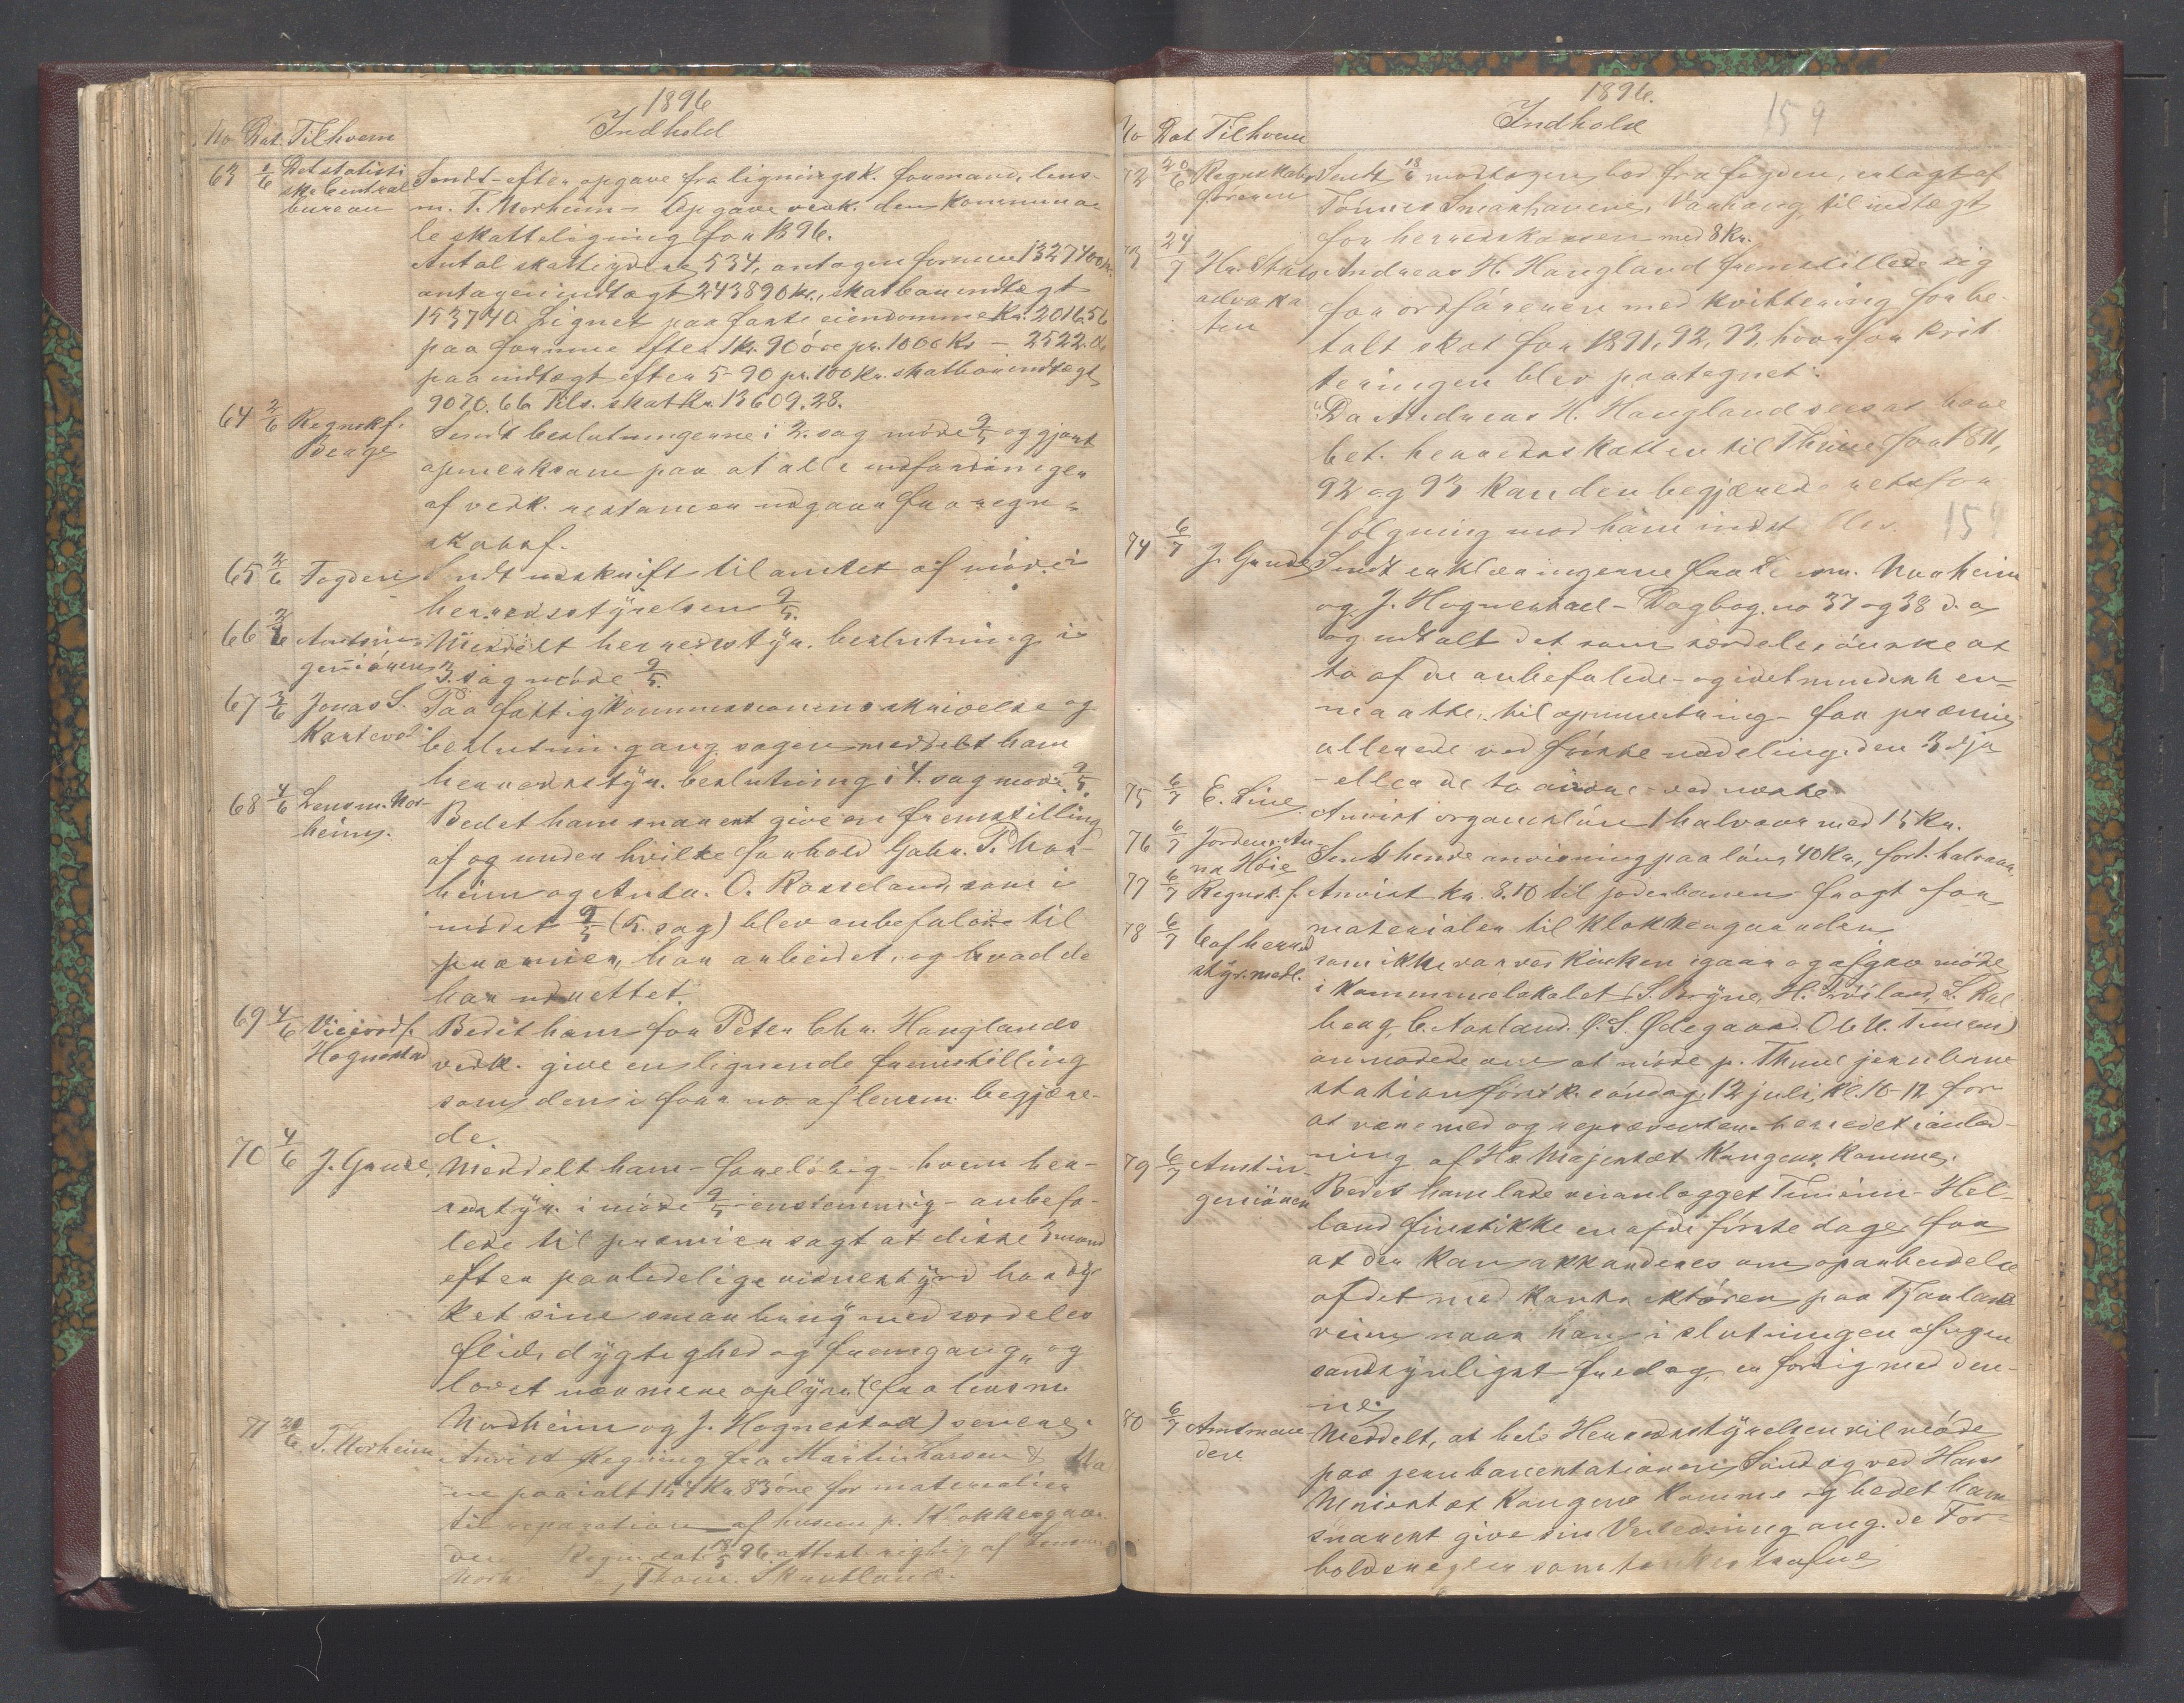 1896
No Dat. Tilhvem Indhold
63 1/6 Det statisti Sendt efter opgave fra ligningsk. formand, lens-
ske Central m. T. Norheim – Opgave vedk. den kommuna-
bureau le skatteligning for 1896.
Antal skatteydere 534, antagen formue 1327400 kr.
antagen indtægt 243890 kr., skatbar indtægt
153740 Lignet paa faste eiendomme Kr. 2016.56
paa formue efter 1 kr. 90 öre pr. 1000 Kr – 2522.06
paa indtægt efter 5-90 pr. 100 Kr. skatbar indtægt
9070.66 Tils. skat Kr. 13609.28.
64 2/6 Regnskf. Sendt beslutningerne i 2. sag möde 9/5 og gjort
Berge opmerksom paa at alle indfordringer
af vedk. restancer udgaar fra regn-
skabsf.
65 2/6 Fogden Sendt udskrift til amtet af möde i
herredsstyrelsen 9/5.
66 2/6 Amtsin- Meddelt herredsstyr. beslutning i
geniören 3. sag möde 9/5.
67 3/6 Jonas S. Paa fattigkommissionens skrivelse og
Kartevol beslutnin. gang. sagen meddelt ham
herredsstyr. beslutning i 4. sag möde 9/5.
68 4/6 Lensm. Nor- Bedet ham snarest give en fremstilling
heim. af og under hvilke forhold Gabr. P. Nor-
heim og Anta. O. Rosseland, som i
mödet 9/5 (5. sag) blev anbefalede til
præmier, har arbeidet, og hvad de
har udrettet.
69 4/6 Viceordf. Bedet ham for Peter Chr. Hauglands
Hognestad vedk. give en lignende fremstilling
som den i forr. no. af lensm. begjære-
de
70 4/6 J. Grude, Meddelt ham – forelöbig – hvem her-
redstyr. i möde 9/5 enstemmig – anbefa-
lede til præmier sagt at disse 3 mænd
efter paalidelige vidnesbyrd har dyr-
ket sine smaabrug med særdeles
flid, dygtighed og fremgang, og
lovet nærmere oplysn. (fra lensm.
Nordheim og J. Hognestad) senere.
71 20/6 T. Norheim Anvist Regning fra Martin Larsen &
ne paaialt 154 Kr 83 öre for materialier
til reparation af husene p. Klokkergaar-
den Regn. dat. 96 attest. rigtig af Lensm.
Norh Tönne. Skretland.
1896. 159
No Dat Tilhvem Indhold
72 20/6 Regnskabs Sendt 18/6 modtagen bod fra fogden, ertagt af
föreren Tönnes Smaahaugene, Varhaug, til indtægt
for herredskassen med 8 Kr.
73 24/7 Hr. Stats Andreas H. Haugland fremstillede sig
advoka for ordföreren med kvittering for be-
ten talt skat for 1891, 92, 93, hvorfor kvit
teringen blev paategnet:
"Da Andreas H. Haugland sees at have
bet. herredsskatten til Thime for 1891,
92 og 93 kan den begjærede retsfor
fölgning mod ham indst
74 6/7 J. Grude Sendt erklæringerne fra Lensm. Norheim
og J. Hognestad – Dagbog no 37 og 38 d. a
og udtalt det som særdeles önske at
to af de anbefalede – og idetmindste en-
maatte, til opmuntring – faa præmie
allerede ved förste uddeling, den 3dje
– eller de to andre – ved næste.
75 6/7 E. Line Anvist organistlön 1 halvaar med 15 Kr.
76 6/7 Jordem. An- Sendt hende anvisning paa lön, 40 Kr., forl. halvaar,
na Höie
77 6/7 Regnsk.f. Anvist kr. 8.10 til jæderbanen fragt for
materialer til klokkergaarden
78 6/7 6 af herred som ikke var ved kirken igaar og afgav möde
styr. medl. i kommunelokalet (S. Bryne, H. Fröiland, L. Ræ
berg, C. Aasland, O. S. Ødegaard, Ole N. Tunem)
anmodede om at möde p. Thime jernbane
station förstk. söndag 12 juli, kl. 10-12 for
at være med og repræsentere herredet i anled-
ning af Hs Majestæt Kongens Komme.
79 6/7 Amtin- Bedet ham lade veianlægget Tunem – Hel-
geniören land finstikke en af de förste dage for
at der kan akkorderes om oparbeidelse
af det med kontraktören paa Tjaaland
veien naar han i slutningen af ugen
sandsynligst fredag, er færdig med den-
ne.
80 6/7 Amtman Meddelt, at hele Herredsstyrelsen vil möde
den paa jernbanestationen Söndag ved Hans
Majestæt Kongens Komme og bedet ham
snarest give sin Veiledning ang. de For-
holdsregler som tænkes trufne